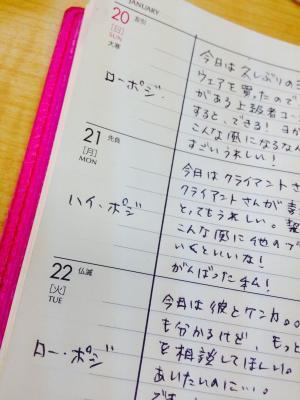 JANUARY
20 友引
[日]
SUN
大寒
ローポジ.
今日は久しぶりの
ウェアを買ったので
がある上級者コー
すると、できる！ヨガ
こんな風になるなん
すごいうれしい！
21 先負
[月]
MON
ハイ・ポジ
今日はクライアントさ
クライアントさんが喜
とってもうれしい。
こんな風に他の
いくといいな！
がんばった私！
22 仏滅
[火]
TUE
ロー・ポジ
今日は彼とケンカ。。
も分かるけど、もっと
を相談してほしい。
あいたいのに…。